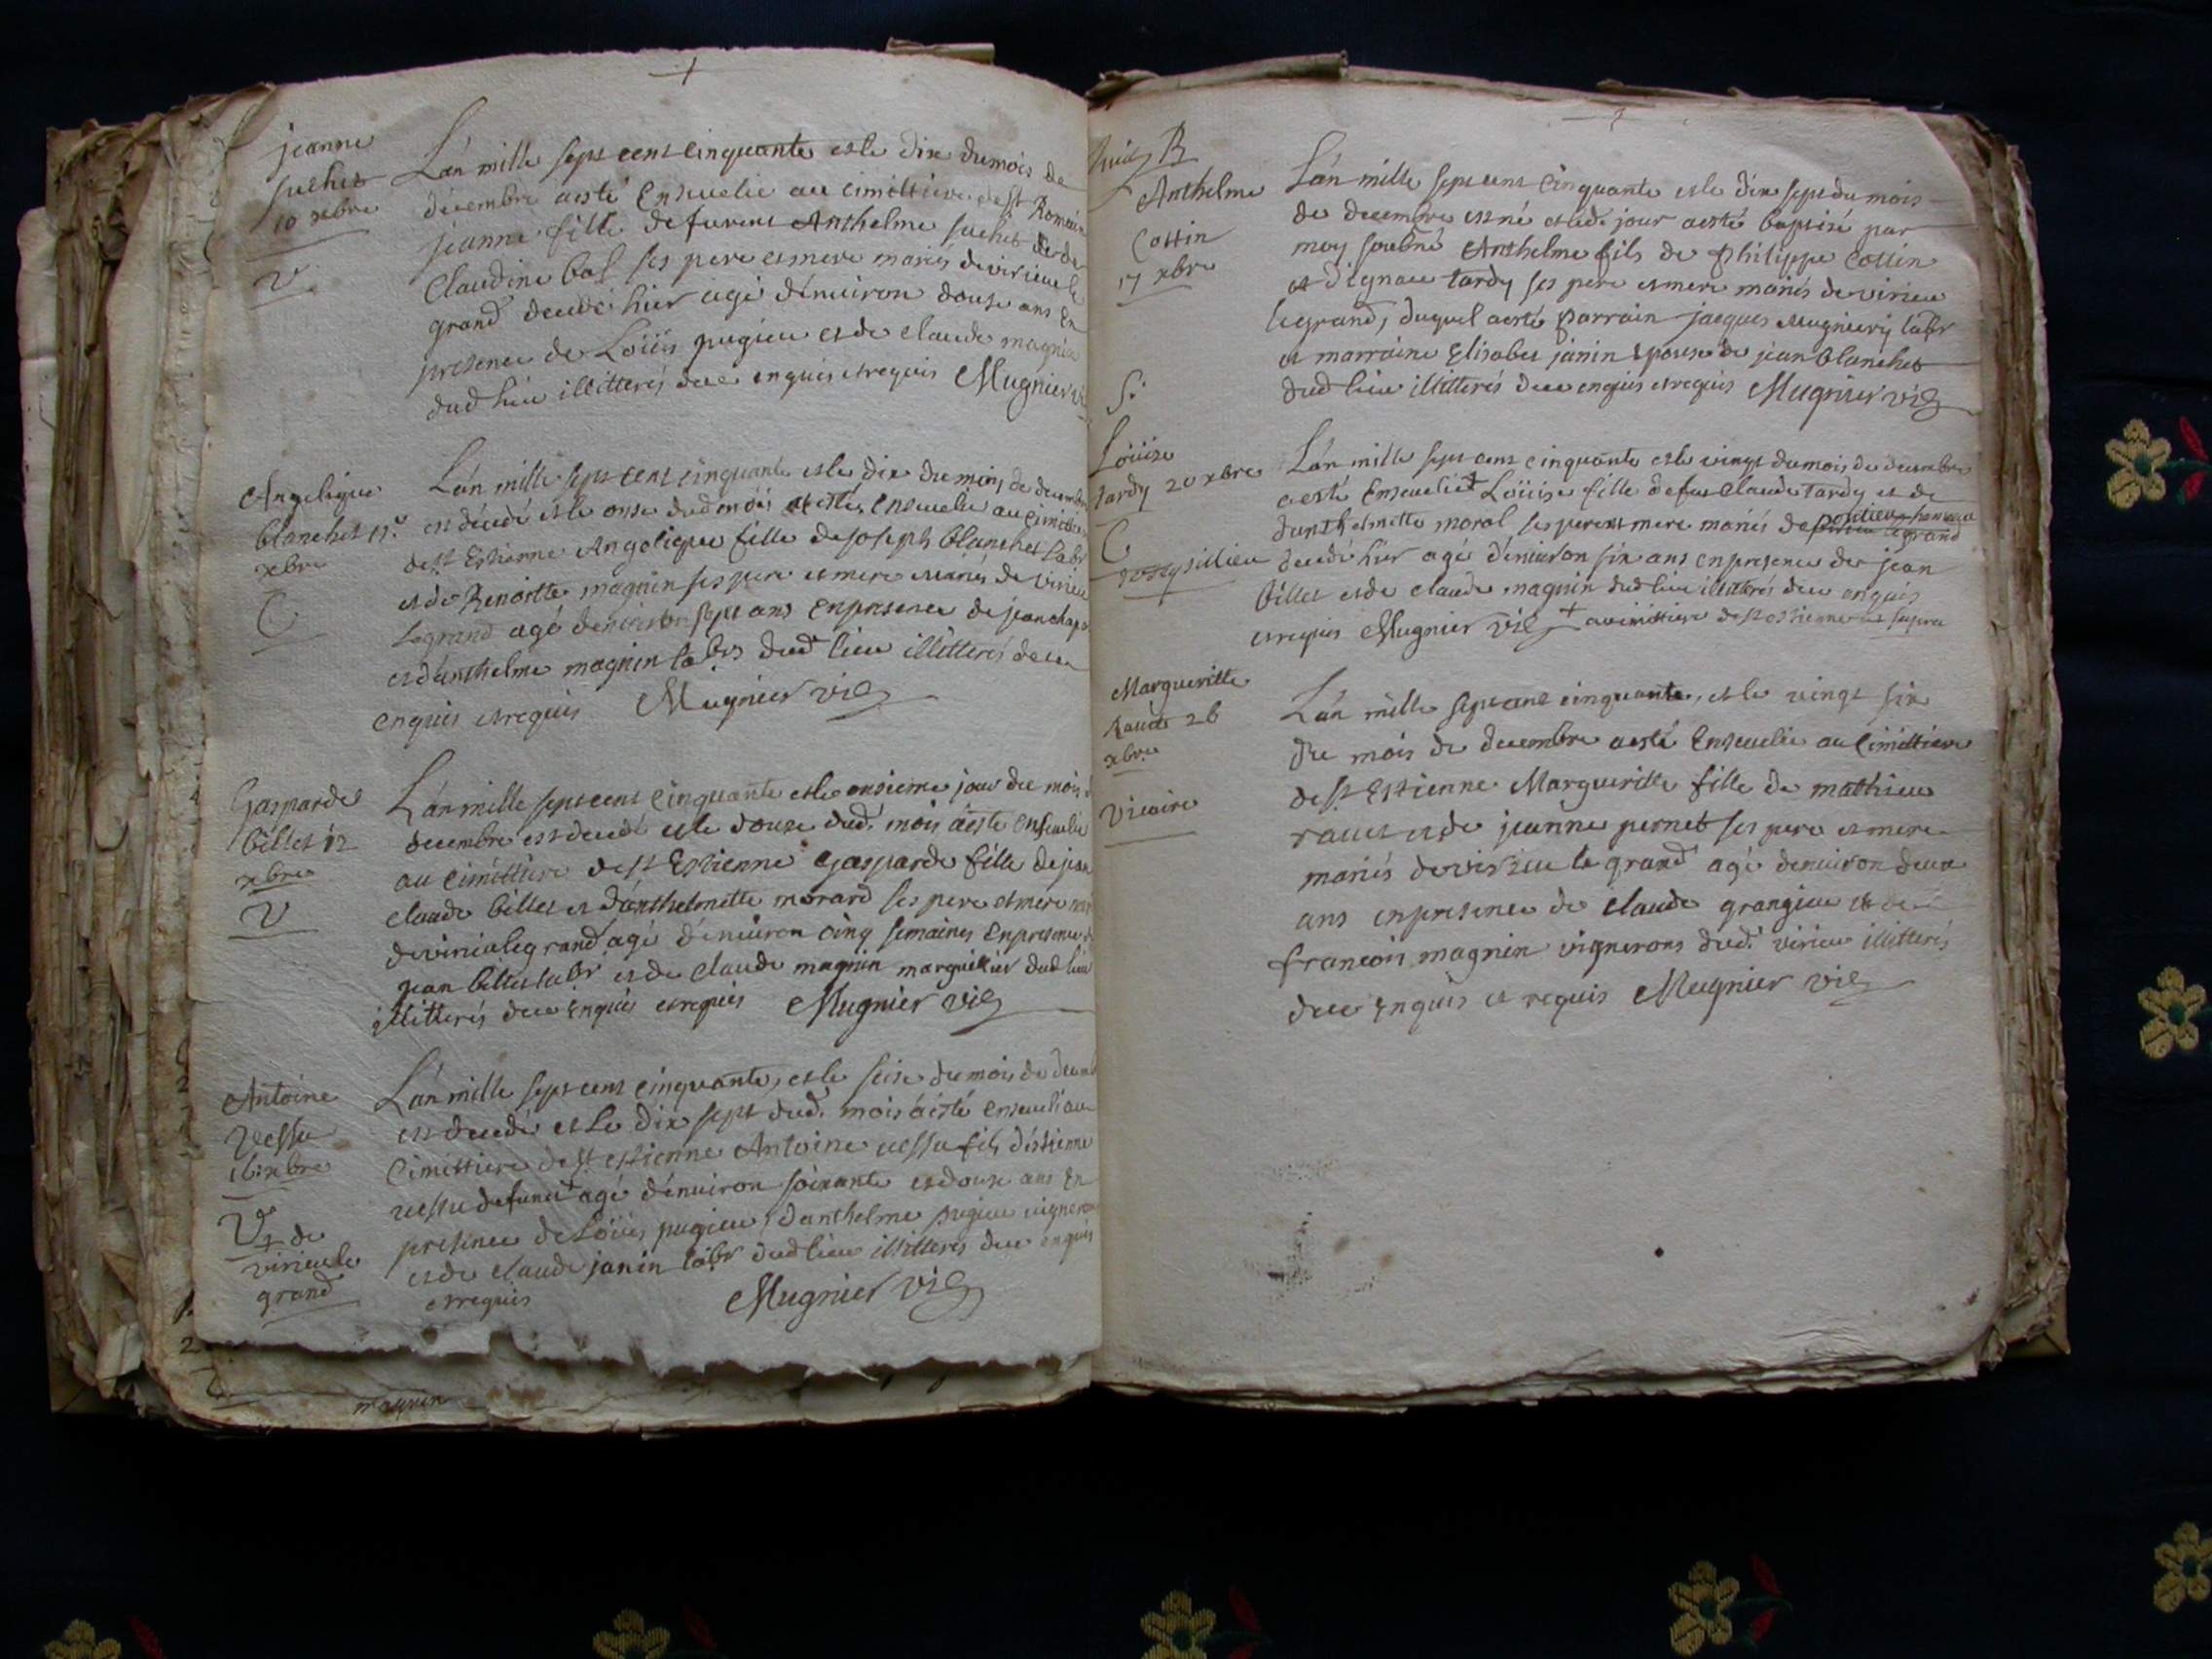 jeanne
suchet
10 xbre
V
L'an mille sept cent cinquante et le dix du mois de
décembre a esté Ensevelie au cimittiere de st Romain
jeanne fille de furent Anthelme suchet et de
Claudine bal ses pere et mere mariés de virieu le
grand decedé hier agé d'enuiron douse ans En
presence de Loüis pugieu et de claude magnin
dud lieu illitterés de ce enquis et requis Mugnier vic
Angelique
blanchet 11e
xbre
C
L'an mille sept cent cinquante et le dix du mois de decembre
est decedé et le onse dud mois a esté ensevelie au cimittiere
de st Estienne Angelique fille de joseph blanchet labr
et de Benoitte magnin ses pere et mere mariés de virieu
Legrand agé denuiron sept ans en presence de jean
et d'anthelme magnin labrs dud lieu illitterés de ce
enquis et requis Mugnier vic
Gasparde
billet 12
xbre
V
L'an mille sept cent cinquante et le onsieme jour du mois
decembre est decedé et le douse dud. mois a esté ensevelie
au cimittiere de st Estienne Gasparde fille de jean
claude billet et d'anthelmette morard ses pere et mere
de virieu legrand agé d'enuiron cinq semaines en presence
jean billet labr et de claude magnin marguillier dud lieu
illitterés de ce enquis et requis Mugnier vic
Antoine
vessu
16: xbre
V de
virieu le
grand
L'an mille sept cent cinquante, et le seise du mois de
est decedé et Le dix sept dud. mois a esté enseueli au
Cimittiere de st estienne Antoine vessu fils d'estienne
vessu defunct agé d'enuiron soixante et douse ans En
presence de Loüis pugieu, d'anthelme pugieu
et de claude janin labr dud lieu illitterés de ce enquis
et requis Mugnier vic
magnin
B
Anthelme
Cottin
17 xbre
L'an mille sept cent cinquante et le dix sept du mois
de decembre est né et led. jour a esté baptisé par
moy soubné Anthelme fils de Philippe Cottin
et tardy ses pere et mere mariés de virieu
legrand, duquel a esté parrain jacques labr
et marraine Elisabet janin épouse de jean blanchet
dud lieu illitterés de ce enquis et requis Mugnier vic
S:
Loüise
tardy 20 xbre
C
L'an mille sept cent cinquante et le vingt du mois de decembre
a esté Enseuelie + Loüise fille de fut Claude tardy et de
d'anthelmette moral ses pere et mere mariés de
decedé hier agé d'enuiron six ans en presence de jean
billet et de claude magnin dud lieu illitterés de ce enquis
et requis Mugnier vic + au cimittiere de st estienne ut supra
Margueritte
Rauet 26
xbre
Vicaire
L'an mille sept cent cinquante, et le vingt six
du mois de decembre a esté Enseuelie au Cimittiere
de st Estienne Margueritte fille de mathieu
rauet et de jeanne pernet ses pere et mere
mariés de virieu le grand agé denuiron deux
ans en presence de claude grangieu et de
francois magnin vignerons dud. virieu illitterés
de ce Enquis et requis Mugnier vic